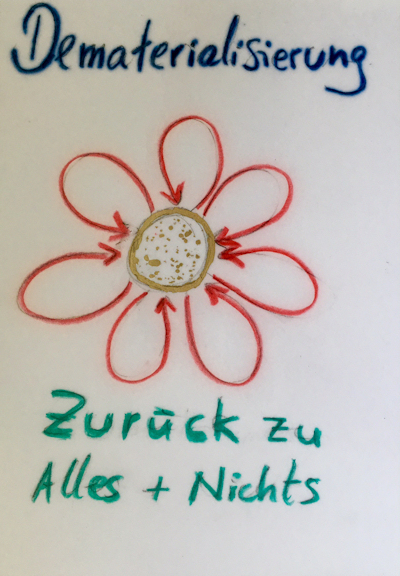 Dematerialisierung
Zurück zu
Alles + Nichts